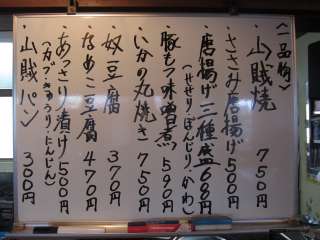 〈一品物〉
・山賊焼 750円
・ささみ唐揚げ 500円
・唐揚げ三種盛 680円
(せせり・ぼんじり・かわ)
・豚もつ味噌煮 590円
・いかの丸焼き 750円
・奴豆腐 370円
・なめこ豆腐 470円
・あっさり漬け 500円
(かぶ・きゅうり・にんじん)
・山賊パン 300円